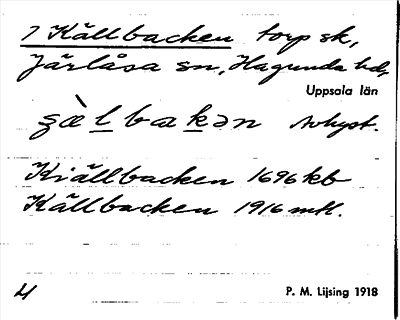 7 Källbacken torp sk,
Järlåsa sn, Hagunda hd,
Uppsala län
ʂæ̀lbakən Avhyst.
Kiällbacken 1696 kb
Källbacken 1916 mtl.
4
P. M. Lijsing 1918